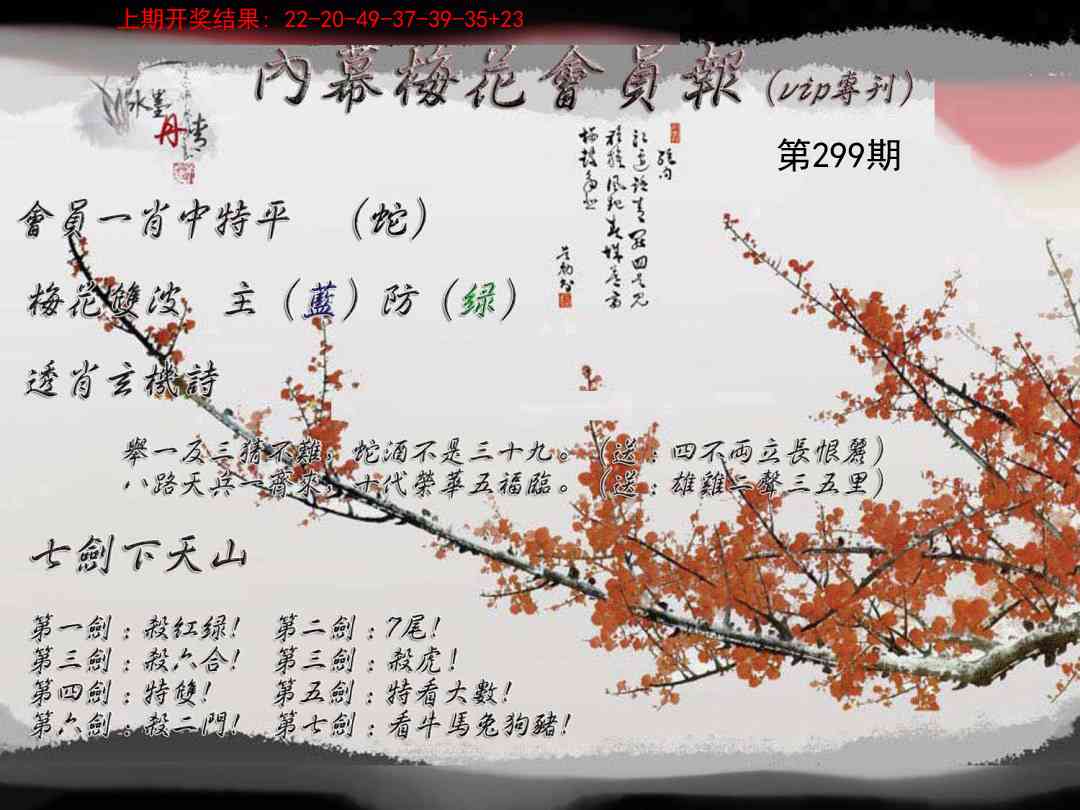 上期开奖结果: 22-20-49-37-39-35+23
內幕梅花會員報(vip專刊)
水墨
丹情
第299期
會員一肖中特平 (蛇)
梅花雙波 主(藍)防(绿)
透肖玄機詩
舉一反三猜不難，蛇酒不是三十九。(送：四不両立長恨麗)
八路天兵一齊來，十代榮華五福臨。(送：雄雞二聲三五里)
七劍下天山
第一劍：殺紅绿! 第二劍：7尾!
第三劍：殺六合! 第三劍：殺虎!
第四劍：特雙! 第五劍：特看大數!
第六劍：殺二門! 第七劍：看牛馬兔狗豬!